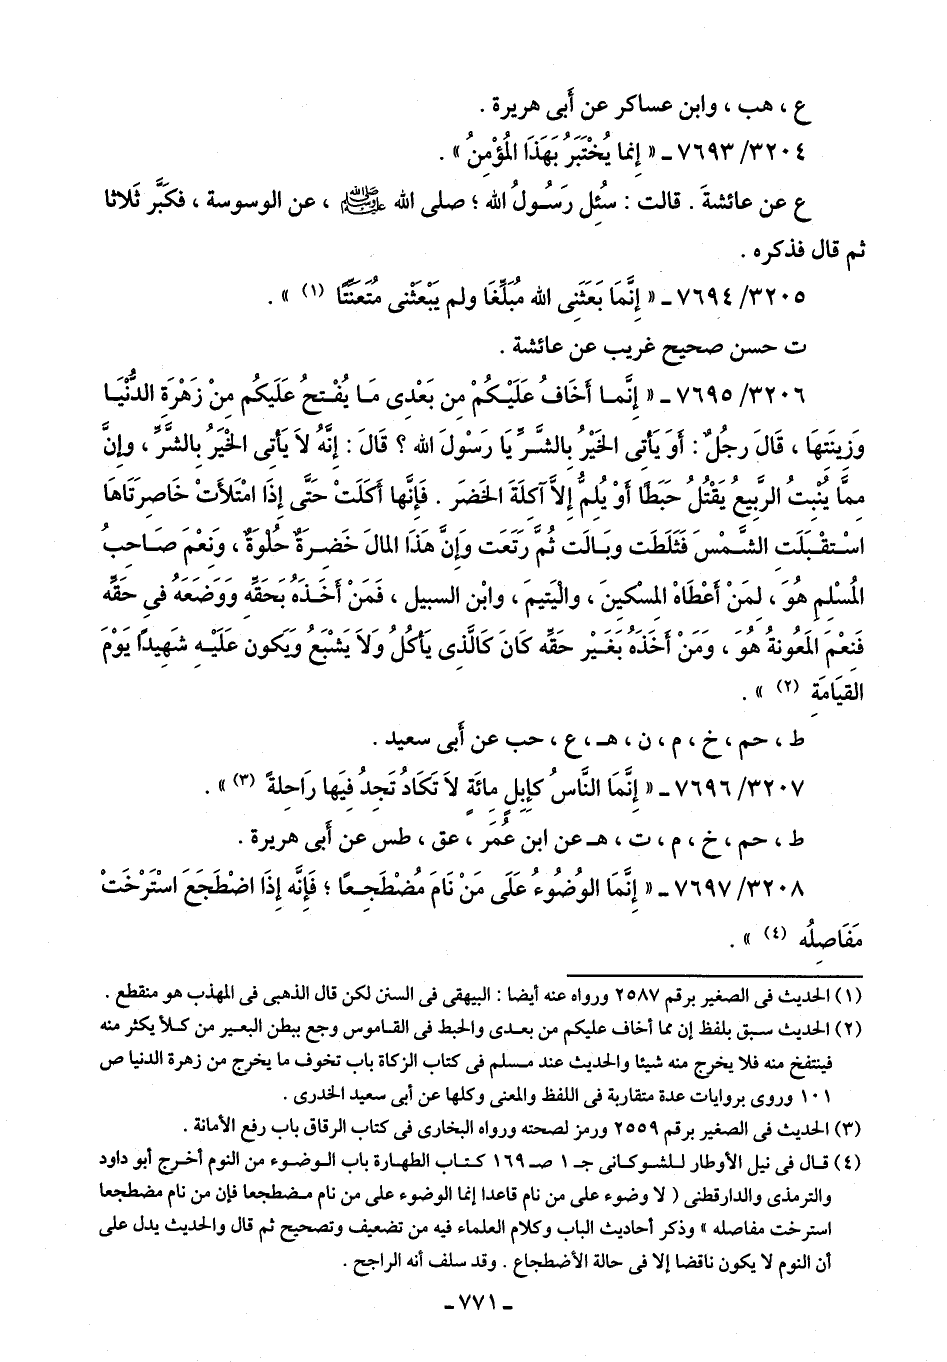 ع ، هب ، وابن عساكر عن أَبى هريرة .
٣٢٠٤/ ٧٦٩٣ ـ « إِنما يُخْتَبَرُ بِهَذَا المُؤْمِنُ » .
ع عن عائشةَ . قالت : سُئِل رَسُولُ الله ؛ صلى الله ﷺ ، عن الوسوسة ، فكَبَّر ثَلاثا
ثم قال فذكره .
٣٢٠٥/ ٧٦٩٤ ـ « إِنَّمَا بَعَثَنِى الله مُبَلِّغَا ولم يَبْعَثْنِى مُتَعَنِّتًا (١) » .
ت حسن صحيح غريب عن عائشة .
٣٢٠٦/ ٧٦٩٥ ـ « إِنَّمـا أَخَافُ عَلَيْـكُمْ مِن بَعْدِى مَـا يُفْـتحُ عَلَيكُم مِنْ زَهْرَةِ الدُّنْيَا
وَزِينَتِهَا ، قَالَ رجلٌ : أَوَ يَأْتِى الخَيْرُ بِالشَّـرِّ يَا رَسُولَ الله ؟ قَالَ : إِنَّهُ لاَ يَأْتِى الخَيْرُ بِالشَّرِّ ، وإِنَّ
مِمَّا يُنْبِتُ الرَّبيعُ يَقْتُلُ حَبَطًا أَوْ يُلِمُّ إِلاَّ آكِلَةَ الخَضِرِ . فَإِنَّها أَكَلَتْ حَتَّى إِذَا امْتَلأَتْ خَاصِرَتَاهَا
اسْـتقْـبَلَتِ الشَّـمْسَ فَثَلَطَت وبَـالَت ثُمَّ رَتَعَت وَإِنَّ هَذَا المالَ خَضِرَةٌ حُلْوَةٌ ، وَنِعْمَ صَـاحِبُ
المُسْلِمِ هُوَ ، لِمَنْ أَعْطَاهُ المِسْكِينَ ، واليَتِيمَ ، وابْن السبيل ، فَمَنْ أَخَـذَهُ بِحَقِّهِ وَوَضَعَهُ فى حَقِّهِ
فَنِعْمَ المَعُونةُ هُوَ ، وَمَنْ أَخَذَهُ بِغَيْـرِ حَقِّه كَانَ كَالَّذِى يَأكُلُ وَلاَ يَشْبَعُ وَيَكون عَلَيْـهِ شَهِيدًا يَوْمَ
القِيَامَةِ (٢) » .
ط ، حم ، خ ، م ، ن ، هـ ، ع ، حب عن أَبى سعيد .
٣٢٠٧/ ٧٦٩٦ ـ « إِنَّمَا النَّاسُ كَإِبِلٍ مِائَةٍ لاَ تَكَادُ تَجِدُ فِيهَا رَاحِلةً (٣) » .
ط ، حم ، خ ، م ، ت ، هـ عن ابن عُمَر ، عق ، طس عن أَبى هريرة .
٣٢٠٨/ ٧٦٩٧ ـ « إِنَّمَا الوُضُوءُ عَلَى مَنْ نَامَ مُضْطَجِـعًا ؛ فَإِنَّه إِذَا اضْطَجَعَ اسْتَرْخَتْ
مَفَاصِلُه (٤) » .
(١) الحديث فى الصغير برقم ٢٥٨٧ ورواه عنه أيضا : البيهقى فى السنن لكن قال الذهبى فى المهذب هو منقطع .
(٢) الحديث سبق بلفظ إن مما أخاف عليكم من بعدى والحبط فى القاموس وجع ببطن البعير من كلأ يكثر منه
فينتفخ منه فلا يخرج منه شيئا والحديث عند مسلم فى كتاب الزكاة باب تخوف ما يخرج من زهرة الدنيا ص
١٠١ وروى بروايات عدة متقاربة فى اللفظ والمعنى وكلها عن أبى سعيد الخدرى .
(٣) الحديث فى الصغير برقم ٢٥٥٩ ورمز لصحته ورواه البخارى فى كتاب الرقاق باب رفع الأمانة .
(٤) قـال فى نيل الأوطار للشوكانى جـ ١ صـ ١٦٩ كـتاب الطهـارة باب الـوضـوء من النوم أخـرج أبو داود
والترمذى والدارقطنى ( لا وضوء على من نام قاعدا إنما الوضوء على من نام مـضطجعا فإن من نام مضطجعا
استرخت مفاصله » وذكر أحاديث الباب وكلام العلماء فيه من تضعيف وتصحيح ثم قال والحديث يدل على
أن النوم لا يكون ناقضا إلا فى حالة الأضطجاع . وقد سلف أنه الراجح .
ـ ٧٧١ ـ